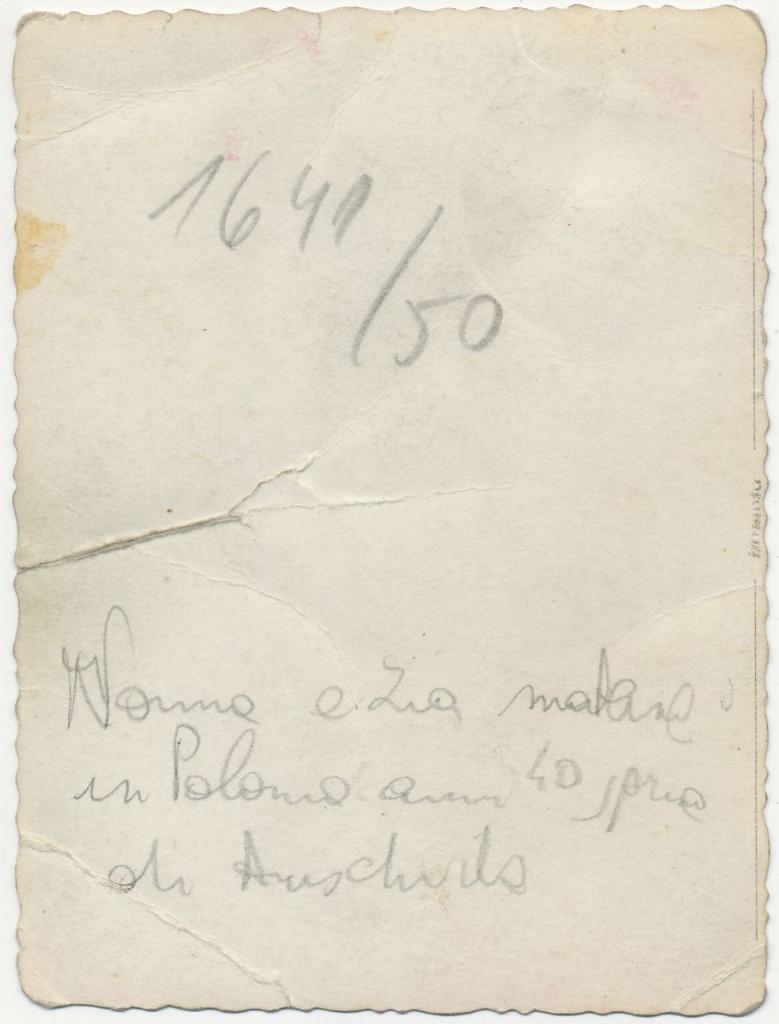 1641
/50
Nonna e zia materne
in Polonia anni 40 prima
di Auschwits